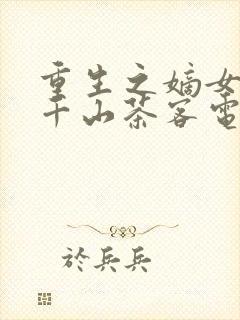 重生之嫡女
千山茶客電
於兵兵